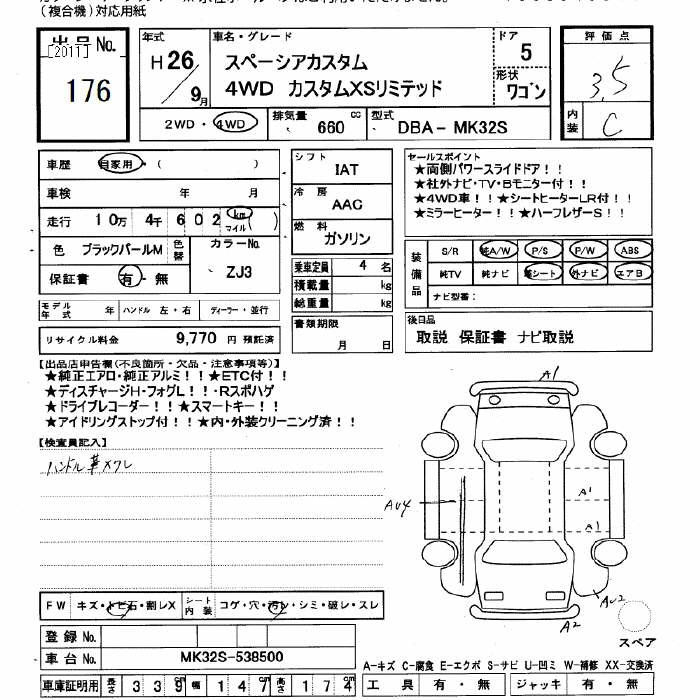 (複合機)対応用紙
出品No.
[2011]
176
年式
H 26
9月
車名・グレード
スペーシアカスタム
4WD カスタムXSリミテッド
ドア
5
形状
ワゴン
評価点
3.5
内装
C
2WD・4WD
排気量
660 cc
型式
DBA- MK32S
車歴 自家用・( )
車検 年 月
走行 10万 4千 602 km マイル
色 ブラックパールM 色替
カラーNo.
ZJ3
保証書 有・無
シフト
IAT
冷房
AAC
燃料
ガソリン
乗車定員 4 名
積載量 kg
総重量 kg
セールスポイント
★両側パワースライドドア!!
★社外ナビ・TV・Bモニター付!!
★4WD車!!★シートヒーターLR付!!
★ミラーヒーター!!★ハーフレザーS!!
装備品
S/R 純A/W P/S P/W ABS
純TV 純ナビ 革シート 外ナビ エアB
ナビ型番:
モデル年式 年 ハンドル 左・右 ディーラー・並行
リサイクル料金 9,770 円 預託済
書類期限
月 日
後日品
取説 保証書 ナビ取説
【出品店申告欄(不良箇所・欠品・注意事項等)】
★純正エアロ・純正アルミ!!★ETC付!!
★ディスチャージH・フォグL!!・Rスポハゲ
★ドライブレコーダー!!★スマートキー!!
★アイドリングストップ付!!★内・外装クリーニング済!!
【検査員記入】
ハンドル革スレ
A1
AU4
A1
A1
AU2
A2
スペア
FW キズ・トビ石・割レX シート内装 コゲ・穴・汚レ・シミ・破レ・スレ
登録No.
車台No. MK32S-538500
車庫証明用 長さ 339 幅 147 高さ 174
A-キズ C-腐食 E-エクボ S-サビ U-凹ミ W-補修 XX-交換済
工具 有・無 ジャッキ 有・無